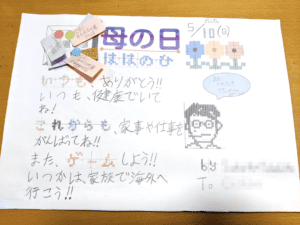 母の日
ははのひ
5/10(日)
いつも、ありがとう!!
いつも、健康でいて
ね!
これからも、家事や仕事を
がんばってね!!
また、ゲームしよう!!
いつかは、家族で海外へ
行こう!!
by
To